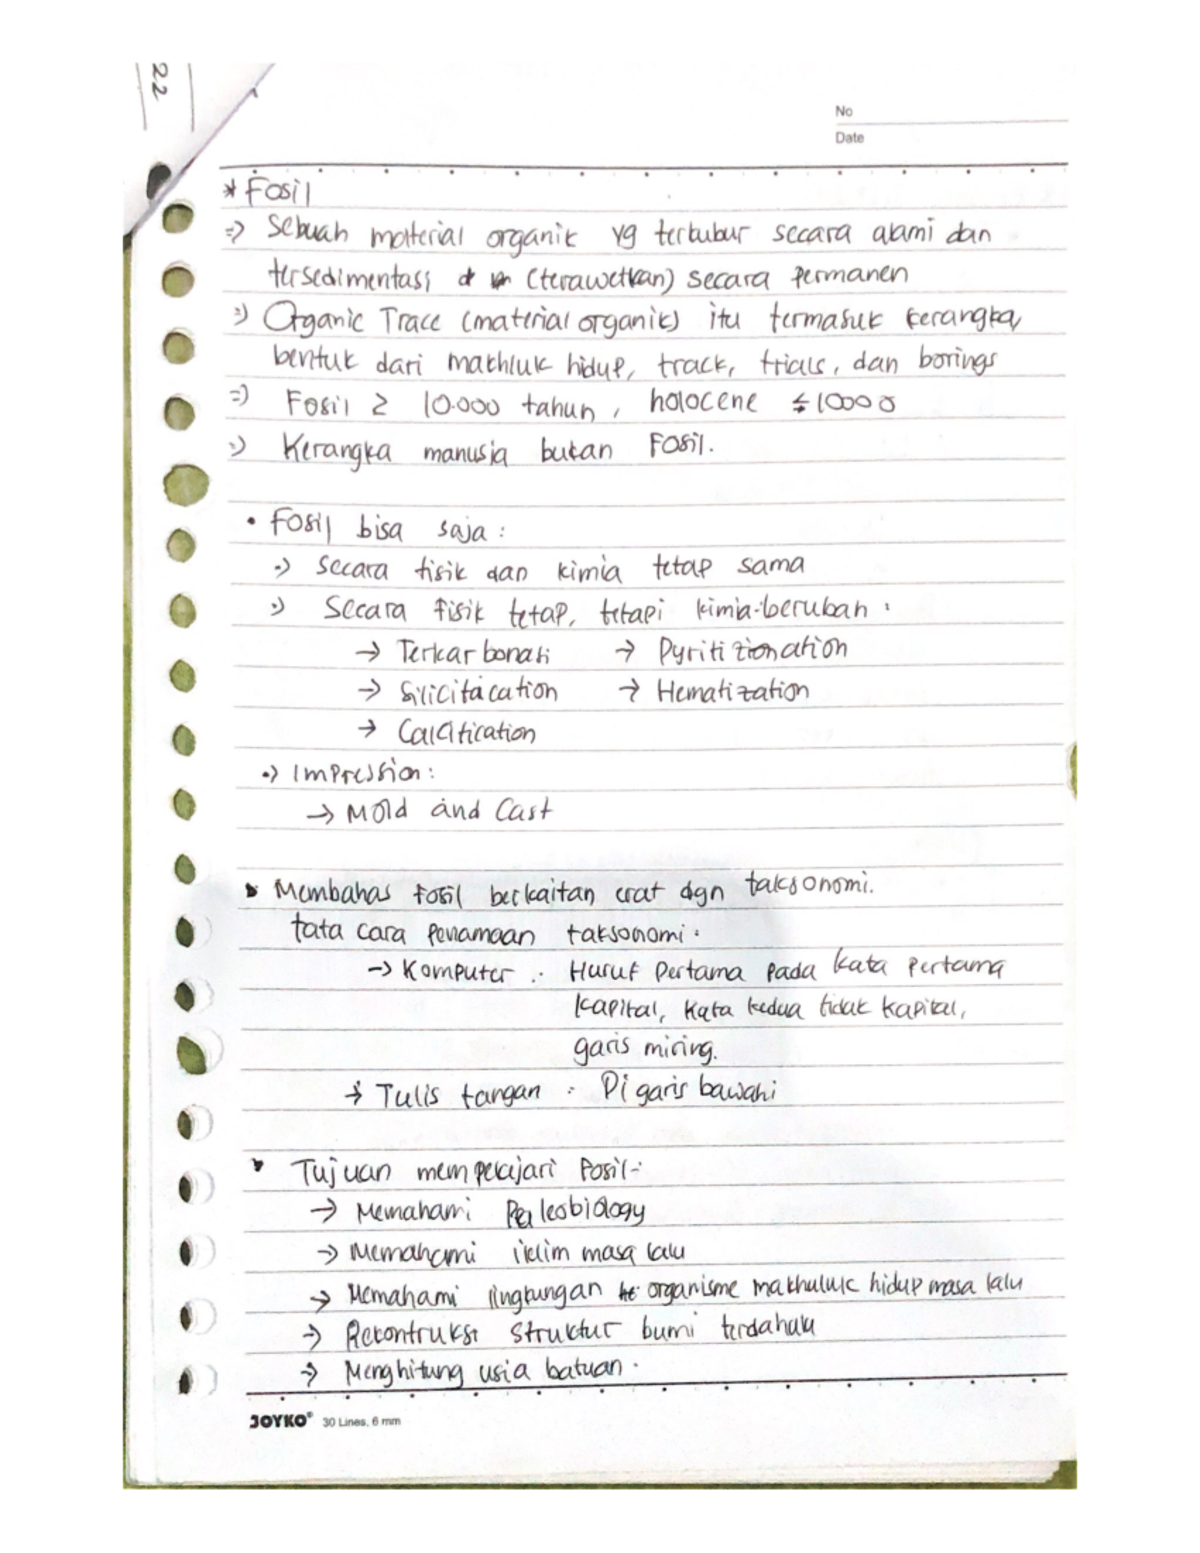 22
No
Date
* Fosil
=> Sebuah material organik yg terkubur secara alami dan
tersedimentasi (terawetkan) secara permanen
=> Organic Trace (material organik) itu termasuk kerangka,
bentuk dari makhluk hidup, track, trials, dan borings
=> Fosil ≥ 10.000 tahun, holocene ≤ 10000
=> Kerangka manusia bukan Fosil.
• Fosil bisa saja :
=> Secara fisik dan kimia tetap sama
=> Secara Fisik tetap, tetapi kimia berubah :
→ Terkarbonasi → Pyritizionation
→ Silicifacation → Hematization
→ Calcification
=> Impression :
→ Mold and Cast
• Membahas fosil berkaitan erat dgn taksonomi.
tata cara penamaan taksonomi :
→ Komputer : Huruf Pertama pada kata pertama
kapital, kata kedua tidak kapital,
garis miring.
→ Tulis tangan : Di garis bawahi
• Tujuan mempelajari Fosil :
→ Memahami Paleobiology
→ Memahami iklim masa lalu
→ Memahami lingkungan organisme makhuluk hidup masa lalu
→ Rekontruksi struktur bumi terdahulu
→ Menghitung usia batuan.
JOYKO® 30 Lines, 6 mm